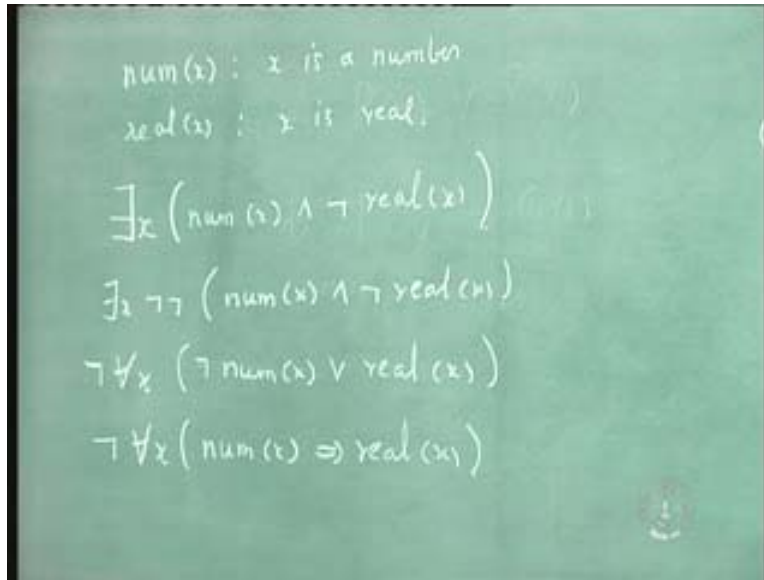 num(x) : x is a number
real(x) : x is real.
∃x (num(x) ∧ ¬ real(x))
∃x ¬¬ (num(x) ∧ ¬ real(x))
¬∀x (¬ num(x) ∨ real(x))
¬∀x (num(x) ⇒ real(x))